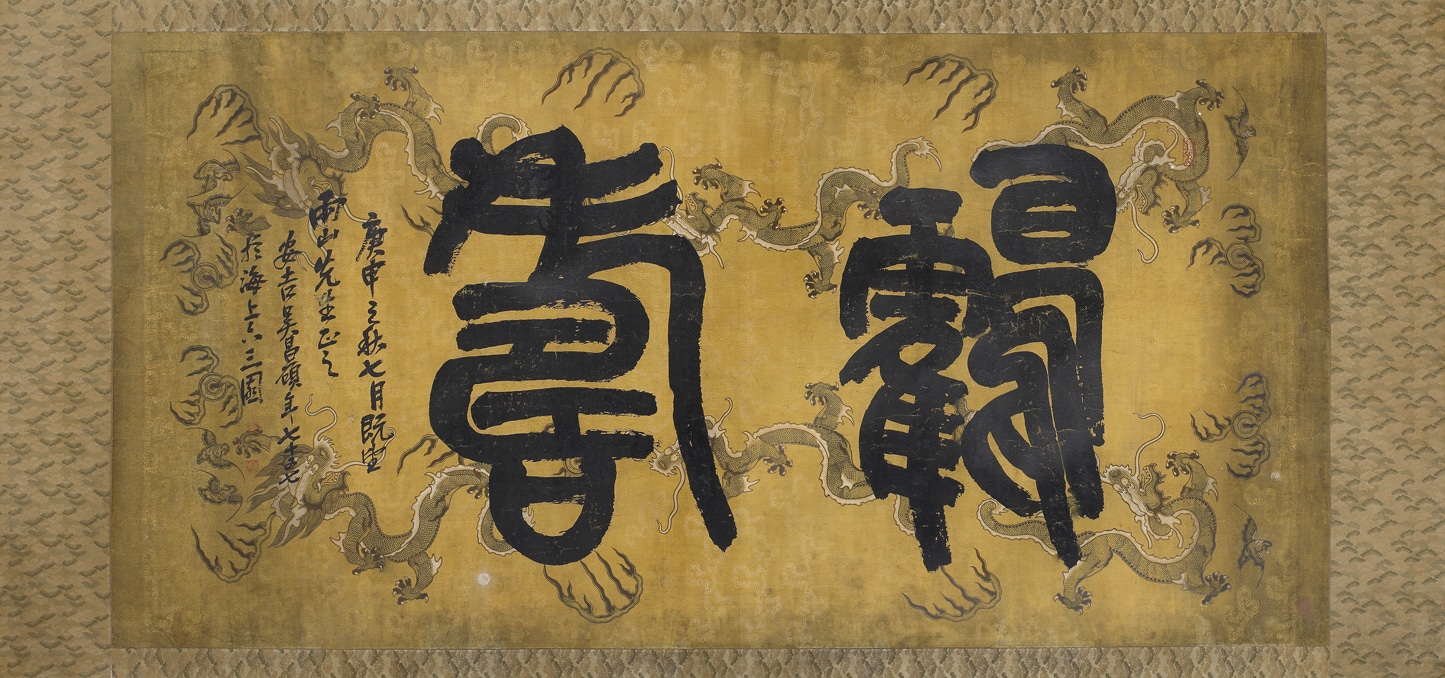 鸖壽
庚申之秋七月既望
雨山先生正之
安吉吳昌碩年七十七
於海上六三園